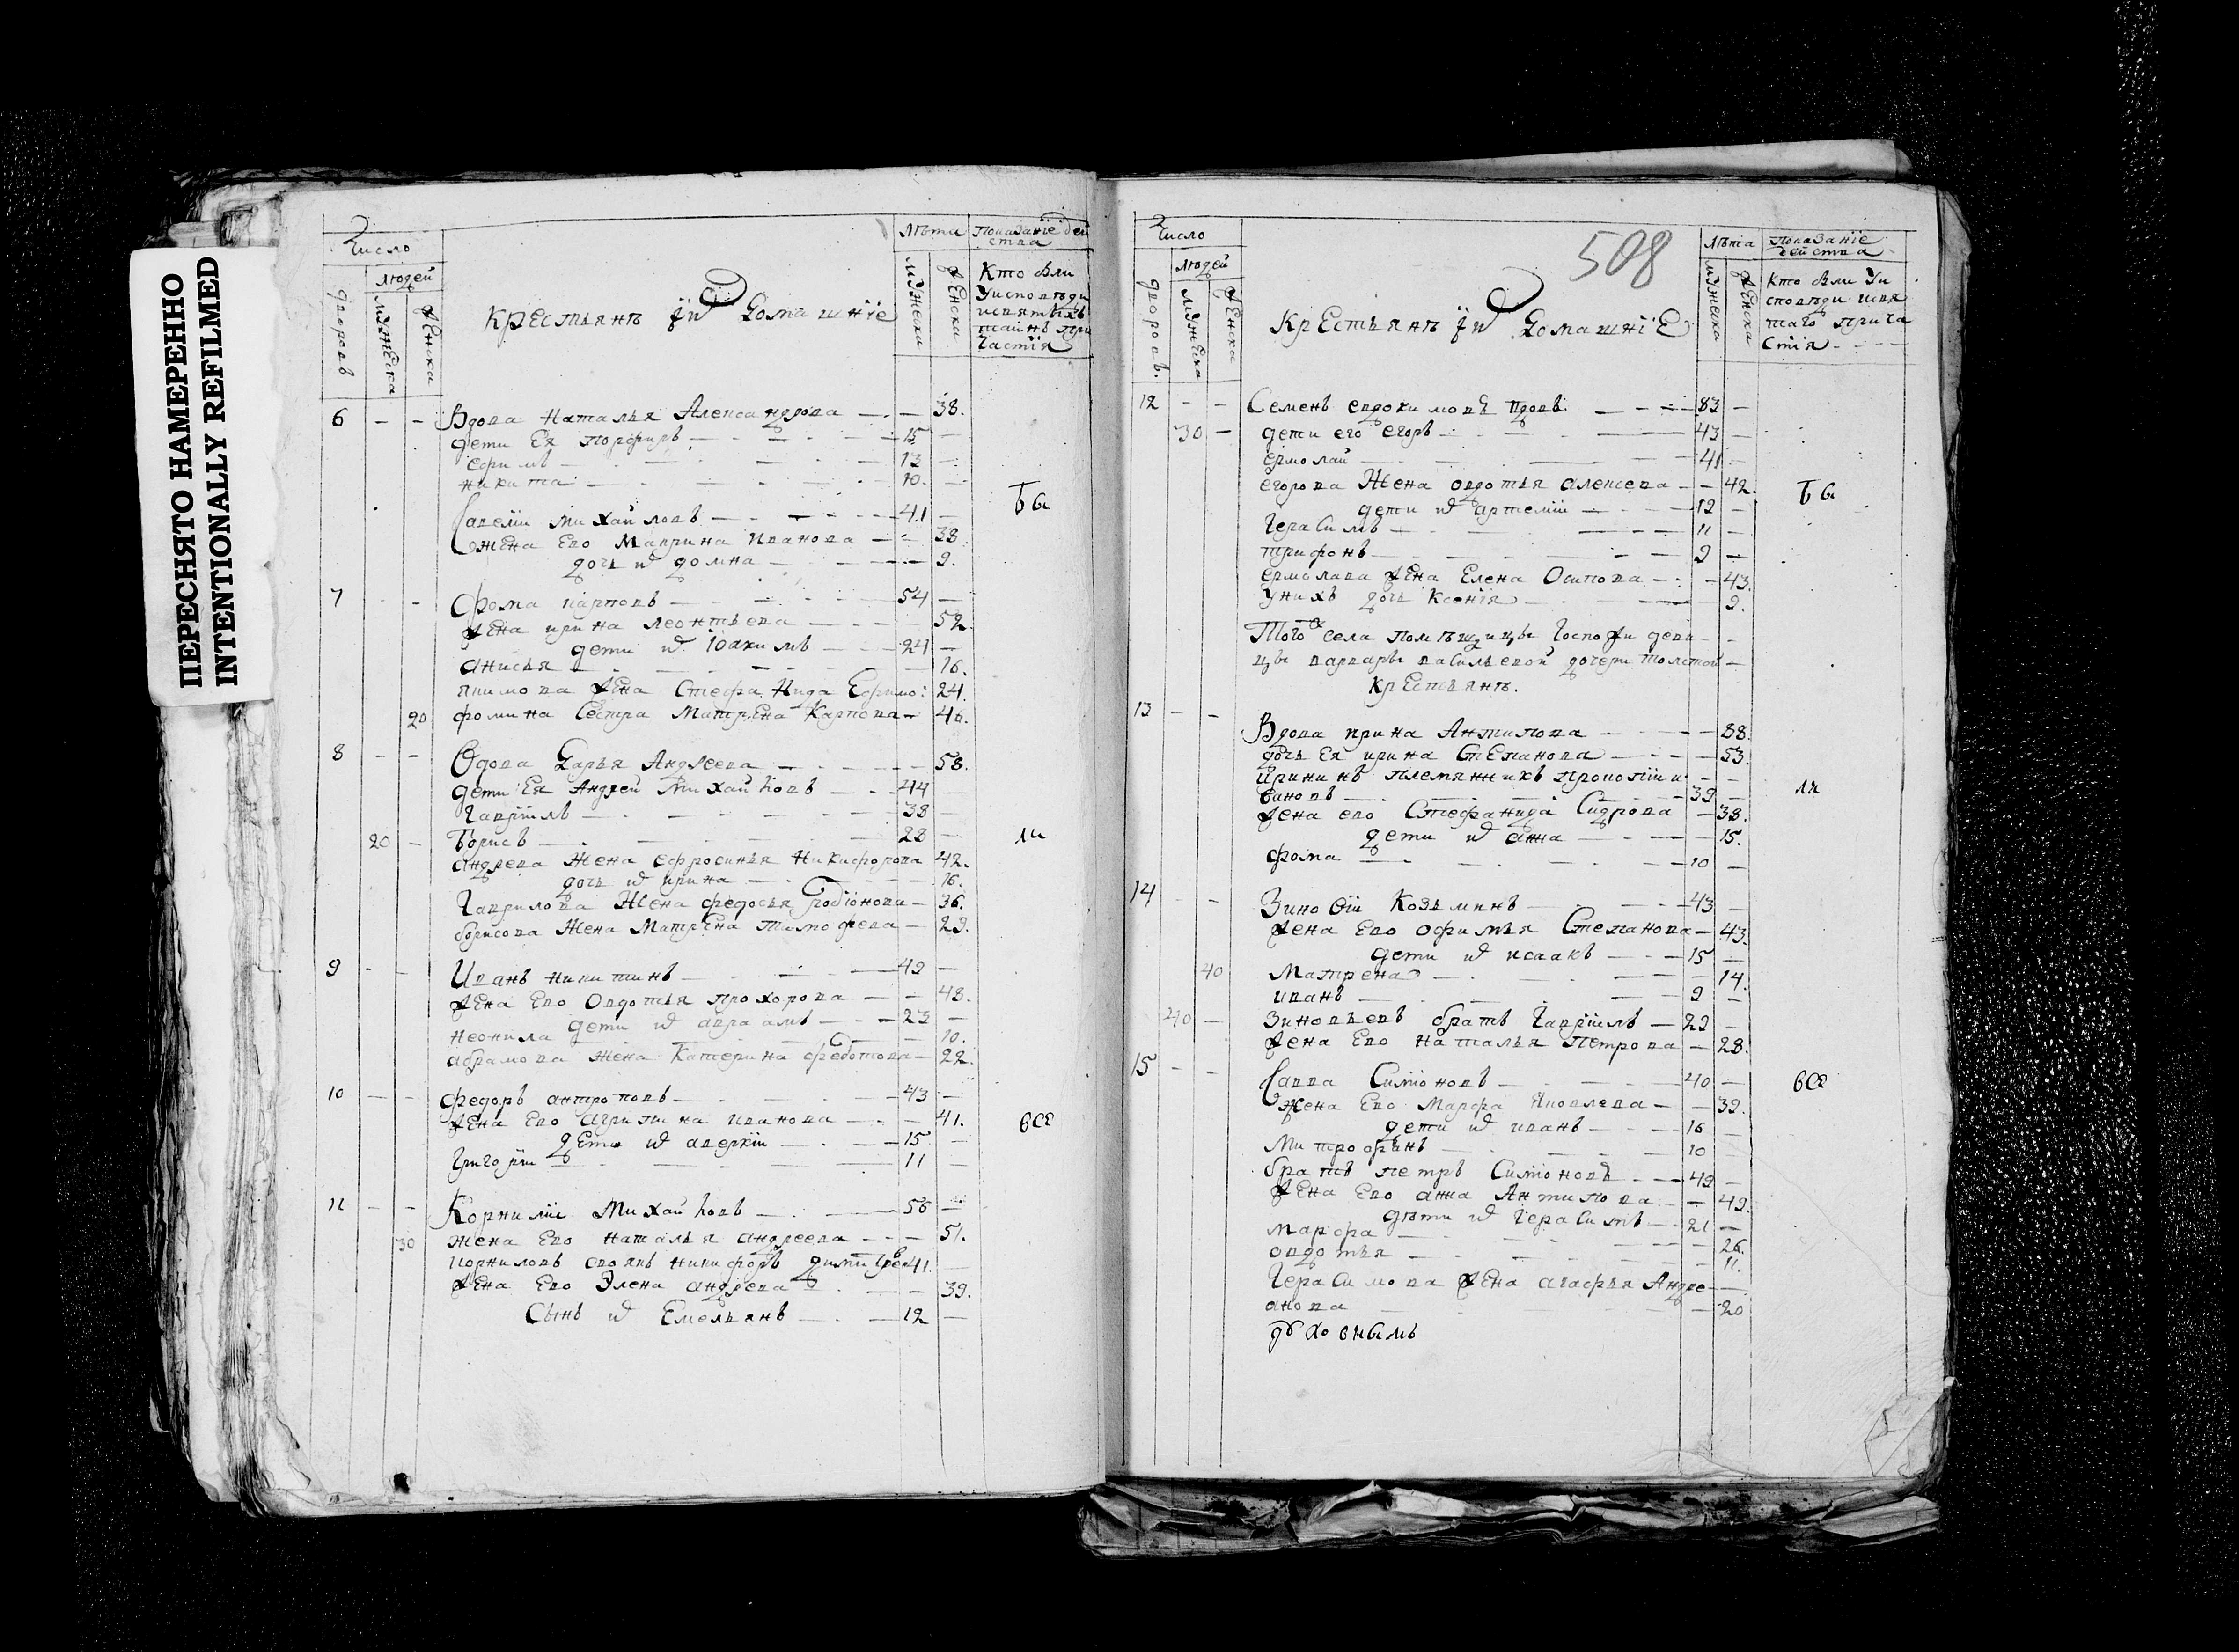 ПЕРЕСНЯТО НАМЕРЕННО
INTENTIONALLY REFILMED
Число
Людей
дворовъ
мужеска
женска
крестьянъ их домашніе
Лѣта
мужеска
женска
Показаніе дей
ства
Кто были
у исповѣди
и святыхъ
таинъ при
частія
6 - - Вдова Наталья Александрова - - 38.
дети ея порфиръ - 15 -
ефимъ - 13 -
никита - 10. -
Савелїи михайловъ - 41 -
жена ево Маврина иванова - 38
дочь их домна - 9.
бы
7 - - фома карповъ - 54 -
жена ирина леонтьева - 52.
дети их Іоакимъ - 24 -
анисья - 16.
якимова жена Стефанида Ефимо: 24.
20 фомина Сестра Матрена Карпова - 46.
8 - - Вдова Дарья Андреева - 58.
дети Ея Андрей Михайловъ - 44 -
Гаврїилъ - 38
20 - Борисъ - 28 -
ли
андреева жена ефросинья Никифорова 42.
дочь их ирина - 16.
Гаврилова жена федосья Родїонова - 36.
борисова жена Матрена тимофеева - 29.
9 - - Иванъ никитинъ - 49 -
жена Ево Овдотья прохорова - 48.
дети их авраамъ - 23 -
неонила - 10.
абрамова жена Катерина федотова - 22.
10 - - федоръ антроповъ - 43 -
жена Ево Агрипина иванова - 41.
дети их аверкїи - 15 -
Григорїи - 11
все
11 - - Корнилїи Михайловъ - 56 -
30 жена Ево Наталья андреева - 51.
корниловъ своякъ никифоръ димитрев 41.
жена Ево Элена андреева - 39.
Сынъ их Емельянъ - 12 -
508
Число
Людей
дворовъ.
мужеска
женска
крестьянъ их домашніе
Лѣта
мужеска
женска
показаніе
действа
Кто были у и
споведи и свя
таго прича
стія
12 - - Семенъ евдокимовъ вдовъ. - 83 -
30 - дети его егоръ - 43 -
ермолай - 41 -
егорова жена овдотья алексева - 42.
бы
дети их артемїи - 12 -
Герасимъ - 11 -
трифонъ - 9 -
ермолава жена Елена Осипова - 43.
у нихъ дочь Ксенїя - 9.
Того ж села помѣщицы Госпожи деви-
цы варвары васильевой дочери толстой -
крестьянъ.
13 - - Вдова ирина Антипова - 88.
дочь Ея ирина Степанова - 53.
Ирининъ племянникъ прокопїи и
вановъ - 39 -
ли
жена ево Стефанида Сидрова - 38.
дети их анна - 15.
фома - 10 -
14 - - Зиновїи Козьминъ - 43 -
жена Ево офимья Степанова - 43.
дети их исаакъ - 15 -
40 Матрена - 14.
иванъ - 9 -
40 - зиновьевъ братъ Гаврїилъ - 29 -
жена Ево наталья Петрова - 28.
15 - - Савва Симоновъ - 40 -
все
жена Ево Марфа Яковлева - 39.
дети их иванъ - 16 -
Митрофанъ - 10
братъ петръ Симоновъ - 49 -
жена Ево анна Антипова - 49.
дѣти их Герасимъ - 21 -
марфа - 26.
овдотья - 11.
Герасимова жена агафья Андре
анова - 20
духовнымъ